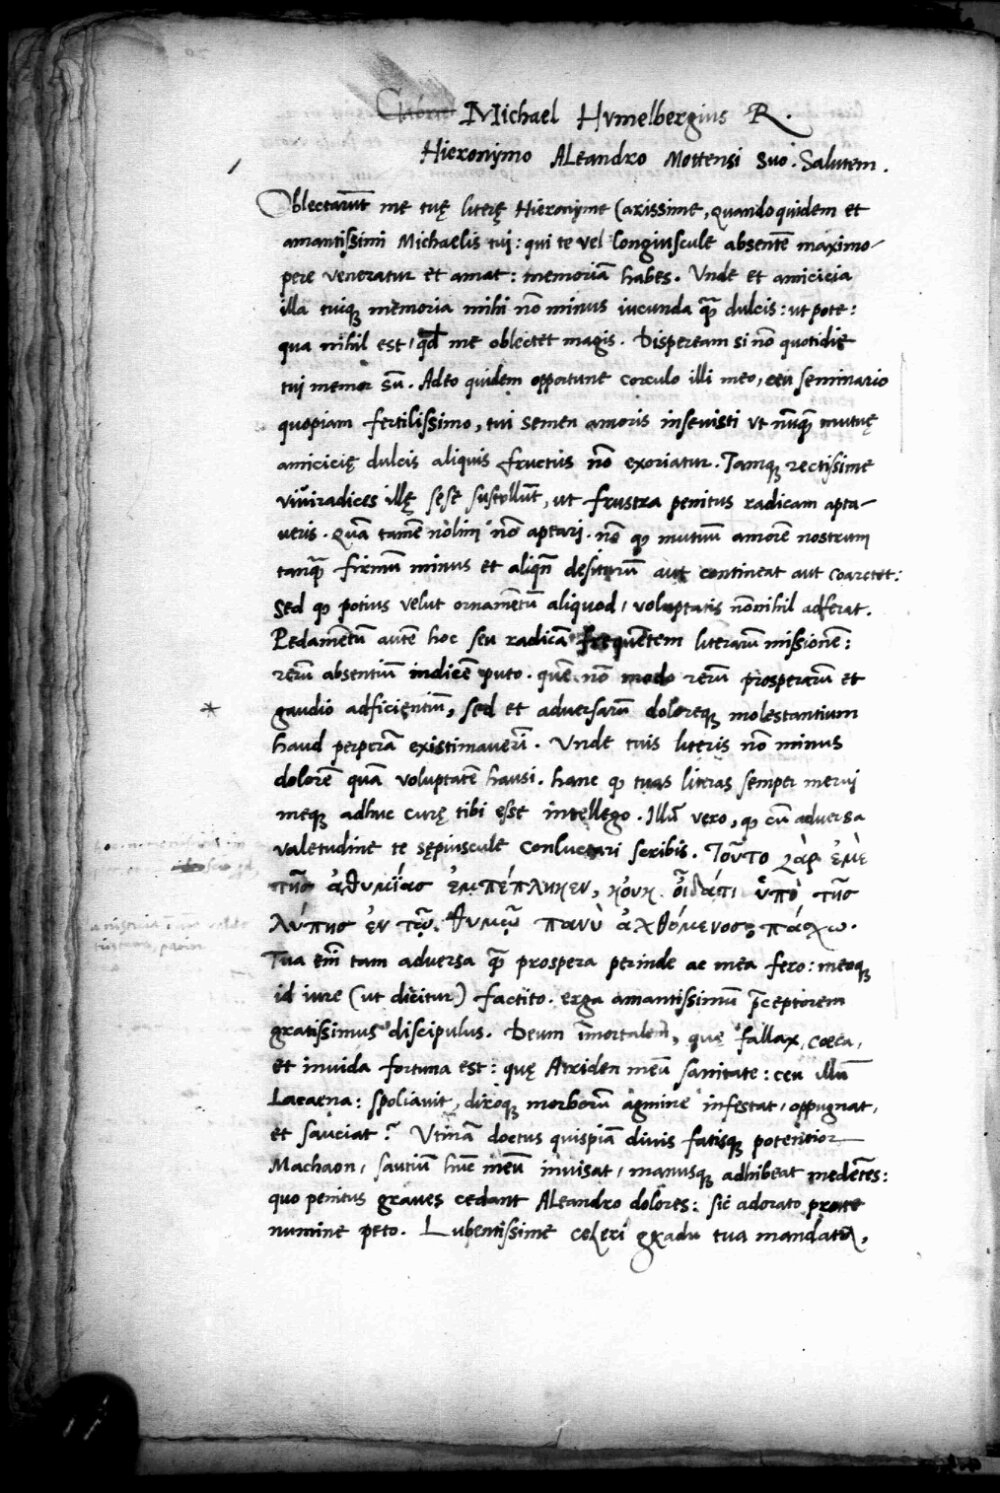 Michael Hvmelbergius R.
Hieronymo Aleandro Mottensi suo. Salutem.
Oblectarūt me tuę literę Hieronyme Carissime, quandoquidem et
amantissimi Michaelis tui: qui te vel longiuscule absentē maximo-
pere veneratur et amat: memoriā habes. Vnde et amicicia
illa tuiqꝫ memoria mihi nō minus iucunda quā dulcis: utpote:
qua nihil est, qđ me oblectet magis. Dispeream si nō quotidie
tui memor sū. Adeo quidem opportune corculo illi meo, ceu seminario
quopiam fertilissimo, tui semen amoris insevisti vt nūquā mutuę
amicicię dulcis aliquis fructus nō exoriatur. Tamqꝫ rectissime
viviradices illę sese sustollūt, ut frustra penitus radicam apta-
ueris. Quā tamē nolim nō aptari. nō qꝫ mutuū amorē nostrum
tanquā firmū minus et aliqn̄ desiturū aut contineat aut coarctet:
Sed qꝫ potius velut ornamētū aliquod, voluptatis nōnihil adferat.
Pedamētū autē hoc seu radicā frequētem literarū missionē:
rerū absentiū indicē puto. quē nō modo rerū prosperarū et
gaudio adficientiū, sed et adversarū doloreqꝫ molestantium
* haud perperā existimaverī. Vnde tuis literis nō minus
dolorē quā voluptatē hausi. hanc qꝫ tuas literas semper merui
meqꝫ adhuc curę tibi esse intellego. Illū vero, qꝫ cū adversa
valetudine te sępiuscule conluctari scribis. Τοῦτο γὰρ ἐμὲ
τῆς ἀθυμίας ἐμπέπληκεν, κοὐκ οἶδ' ἅττι ὑπὸ τῆς
λύπης ἐν τῷ θυμῷ πανὺ ἀχθόμενος πάσχω.
Tua em̄ tam adversa quā prospera perinde ac mea fero: meoqꝫ
id iure (ut dicitur) factito. erga amantissimū p̄ceptorem
gratissimus discipulus. Deum īmortalem, quę fallax, coeca,
et invida fortuna est: quę Atriden meū sanitate: ceu illū
Lacaena: spoliavit, diroqꝫ morborū agmine infestat, oppugnat,
et sauciat? Vtinā doctus quispiā divis fatisqꝫ potentior
Machaon, sautiū hūc meū invisat, manusqꝫ adhibeat medētes:
quo penitus graves cedant Aleandro dolores: sic adorato
numine peto. Lubentissime celeri gradu tua mandata,